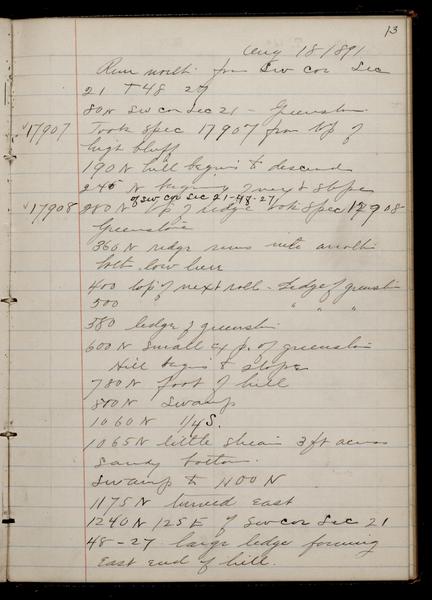 13
Aug 18/891
Run north from Sw Cor Sec
21 T 48 27
80 N Sw Cor Sec 21 - Greenston
√17907 Took spec 17907 from top of
high bluff
190 N hill begins to descend
245 N begining of next slope
of Sw Cor Sec 21-48-27
√17908 280 N top of ridge took spec 17908
Greenstone
360 N ridge runs into another
both low here
400 top of next roll - Ledge of greenston
500 " " " "
580 ledge of greenston
600 N small exp. of greenston
Hill begins to slope
780 N foot of hill
800 N Swamp
1060 N 1/4 S.
1065 N little stream 3 ft across
Sandy bottom
Swamp to 1100 N
1175 N turned East
1240 N 125 E of Sw cor Sec 21
48-27 large ledge forming
East end of hill.